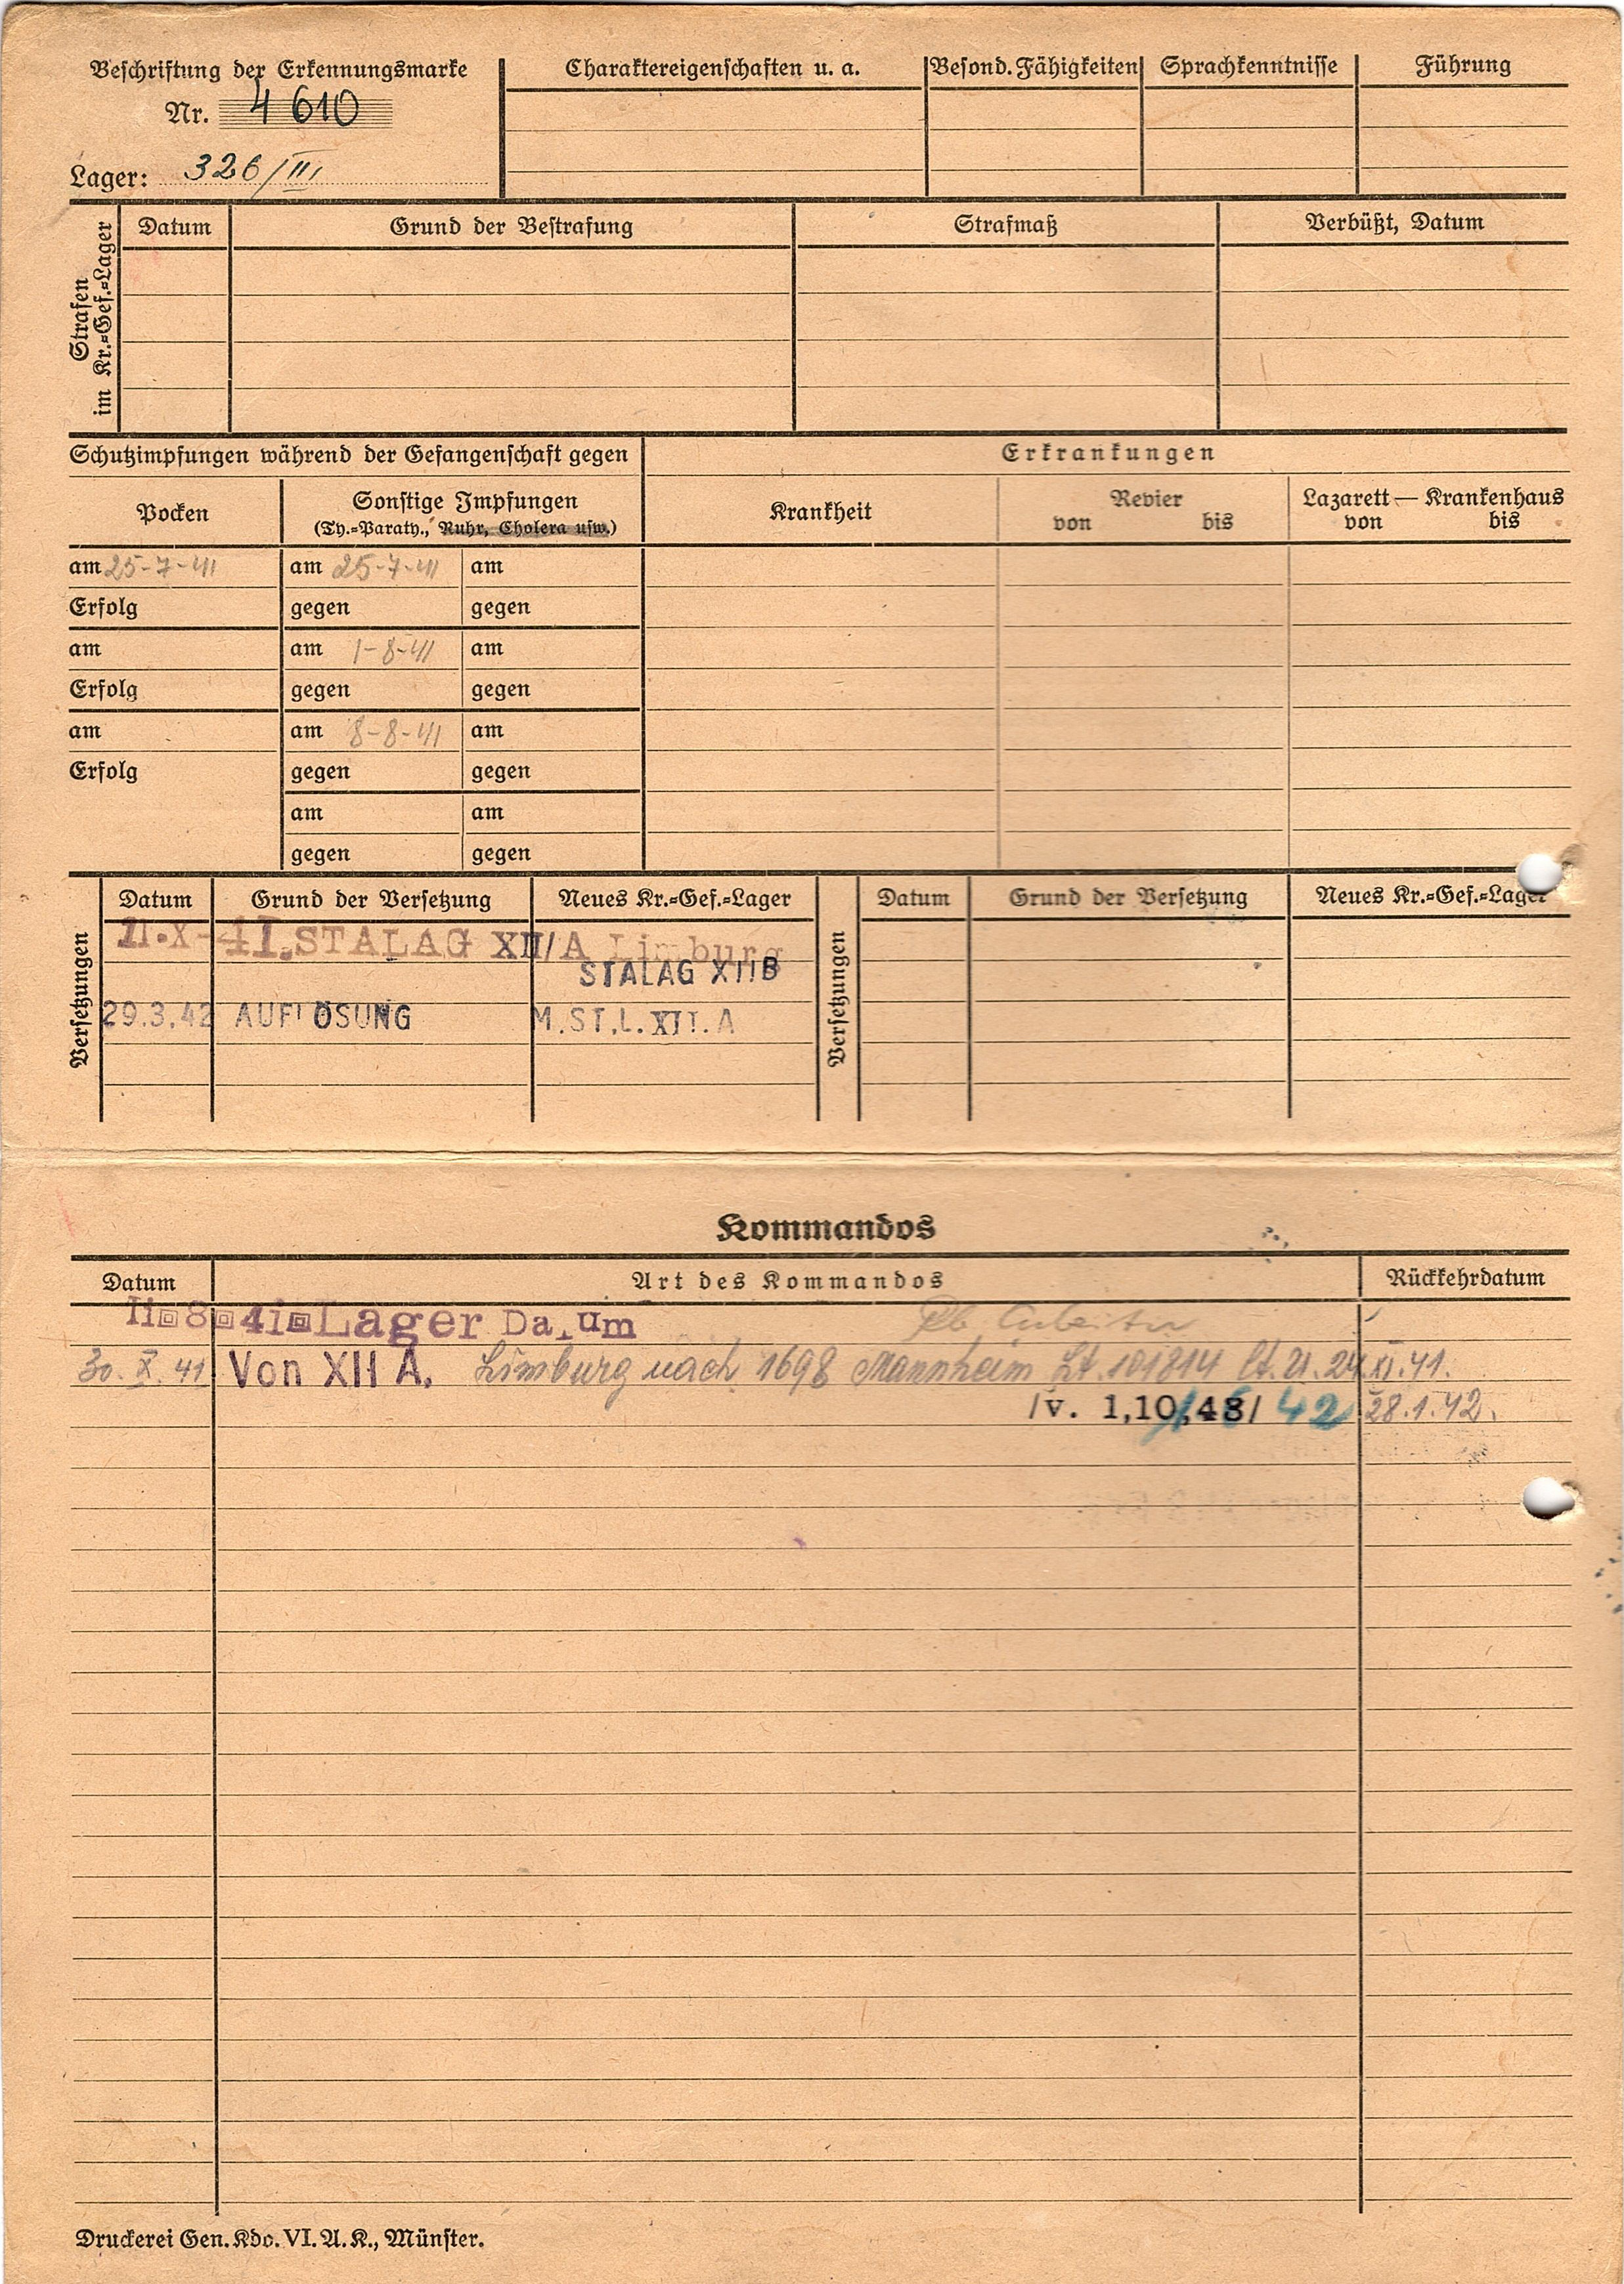 Beschriftung der Erkennungsmarke
Nr. 4610
Lager: 326/III
Charaktereigenschaften u. a.
Besond. Fähigkeiten
Sprachkenntnisse
Führung
Strafen im Kr.=Gef.=Lager
Datum
Grund der Bestrafung
Strafmaß
Verbüßt, Datum
Schutzimpfungen während der Gefangenschaft gegen
Erkrankungen
Pocken
Sonstige Impfungen
(Ty.=Paraty., Ruhr, Cholera usw.)
Krankheit
Revier
von bis
Lazarett — Krankenhaus
von bis
am 25-7-41 am 25-7-41 am
Erfolg gegen gegen
am am 1-8-41 am
Erfolg gegen gegen
am am 8-8-41 am
Erfolg gegen gegen
am am
gegen gegen
Versetzungen
Datum Grund der Versetzung Neues Kr.=Gef.=Lager
11.X-41. STALAG XII/A Limburg
STALAG XIIB
29.3.42 AUFLÖSUNG M.ST.L.XII.A
Versetzungen
Datum Grund der Versetzung Neues Kr.=Gef.=Lager
Kommandos
Datum Art des Kommandos Rückkehrdatum
11 8 41 Lager Dalum
30.X.41 Von XII A. Limburg nach 1698 Mannheim Lt. 101814 24.XI.41.
/v. 1,10,43/ 42 28.1.42.
Druckerei Gen. Kdo. VI. A. K., Münster.